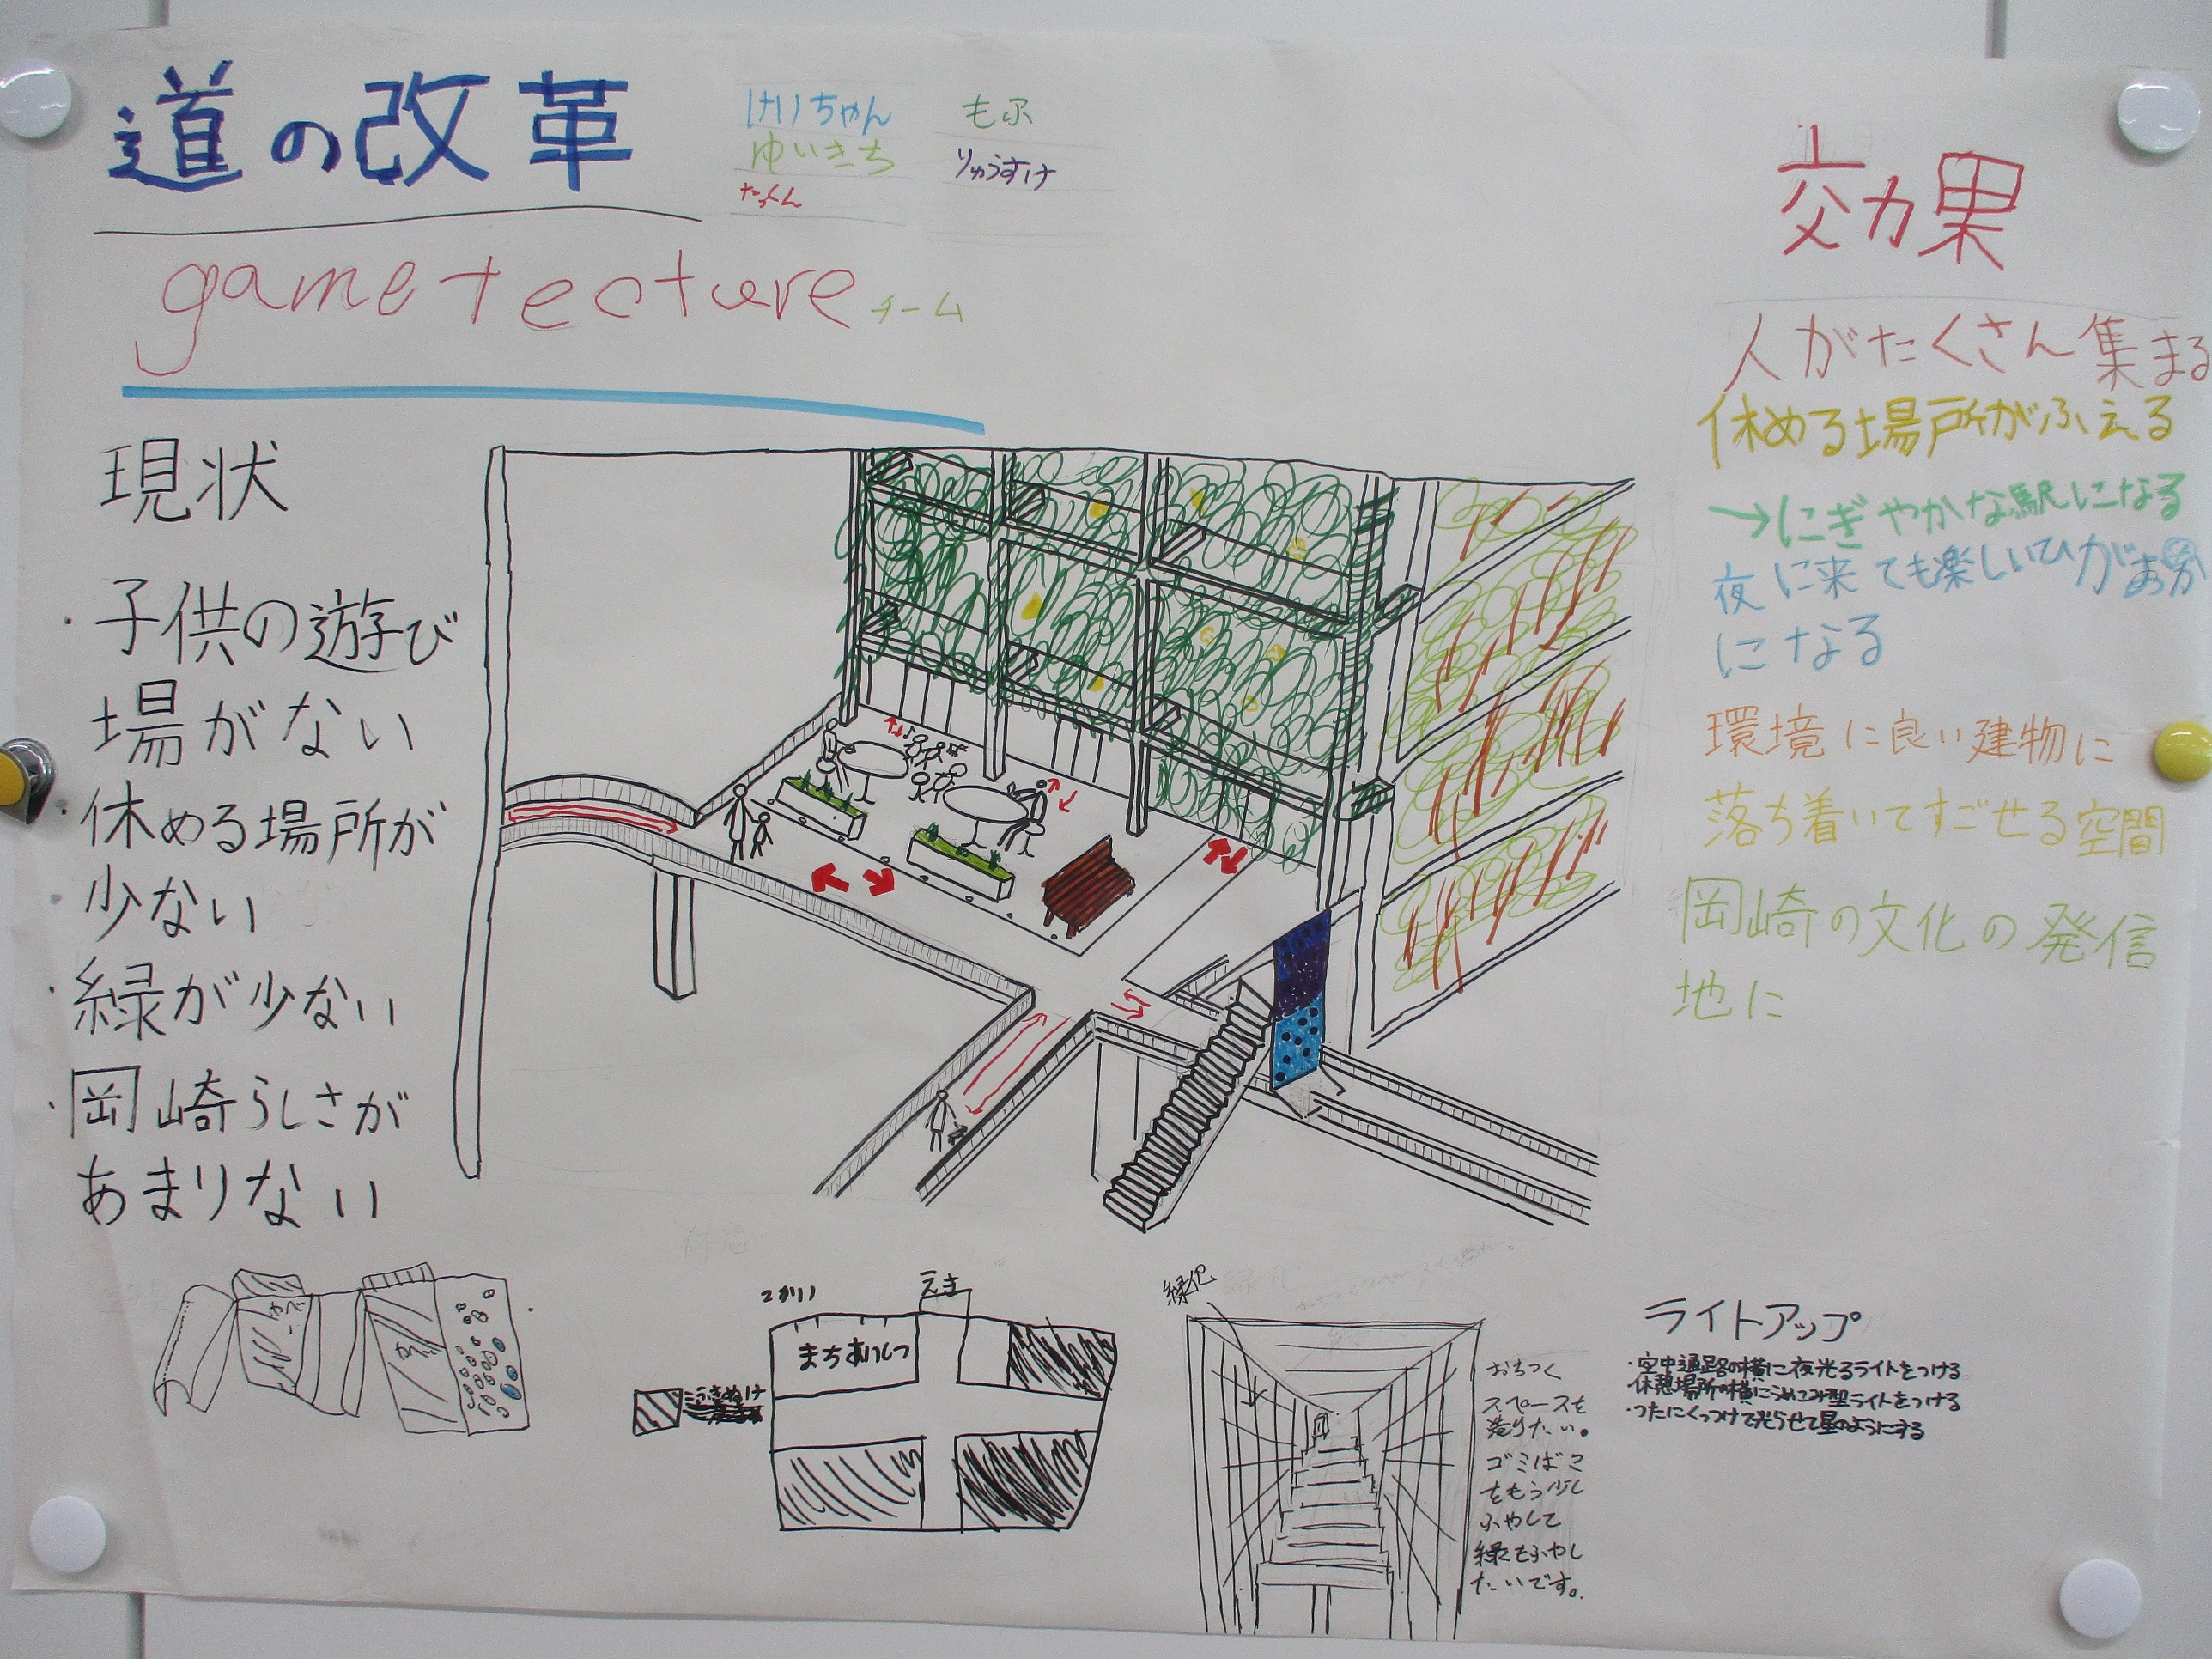 道の改革
けいちゃん
ゆいきち
たっくん
もふ
りゅうすけ
gametectureチーム
現状
・子供の遊び
場がない
・休める場所が
少ない
・緑が少ない
・岡崎らしさが
あまりない
効果
人がたくさん集まる
休める場所がふえる
→にぎやかな駅になる
夜に来ても楽しい
になる
環境に良い建物に
落ち着いてすごせる空間
岡崎の文化の発信
地に
2かい
えき
まちあいしつ
ふきぬけ
緑化
おちつく
スペースを
造りたい。
ゴミばこ
をもう少し
ふやして
緑もふやし
たいです。
ライトアップ
・空中通路の横に夜光るライトをつける
・休憩場所の横にうめこみ型ライトをつける
・つたにくっつけて光らせて星のようにする